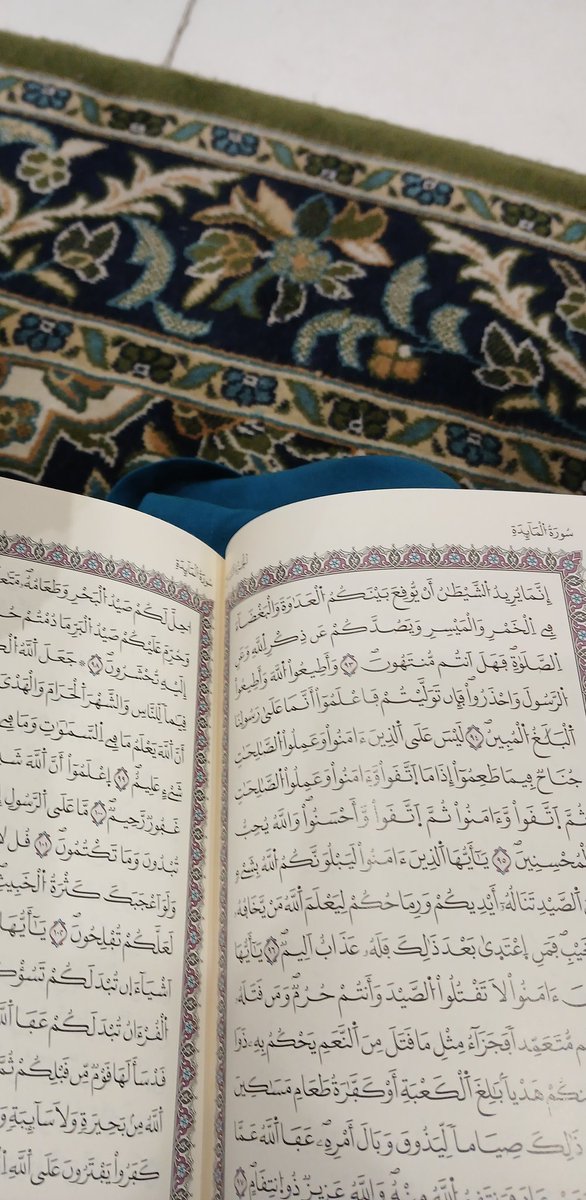 سُورَةُ الْمَآئِدَةِ
إِنَّمَا يُرِيدُ الشَّيْطَٰنُ أَنْ يُّوقِعَ بَيْنَكُمُ الْعَدَٰوَةَ وَالْبَغْضَآءَ
فِے الْخَمْرِ وَالْمَيْسِرِ وَيَصُدَّكُمْ عَن ذِكْرِ اللَّهِ وَعَنِ
الصَّلَوٰةِ فَهَلَ اَنتُم مُّنتَهُونَ ٩٣ وَأَطِيعُوا۟ اللَّهَ وَأَطِيعُوا۟
الرَّسُولَ وَاحْذَرُوا۟ فَإِن تَوَلَّيْتُمْ فَاعْلَمُوا۟ أَنَّمَا عَلَىٰ رَسُولِنَا
الْبَلَٰغُ الْمُبِينُ ٩٤ لَيْسَ عَلَى الَّذِينَ ءَامَنُوا۟ وَعَمِلُوا۟ الصَّٰلِحَٰتِ
جُنَاحٌ فِيمَا طَعِمُوٓا۟ إِذَا مَا اَتَّقَوا۟ وَّءَامَنُوا۟ وَعَمِلُوا۟ الصَّٰلِحَٰتِ
ثُمَّ اَتَّقَوا۟ وَّءَامَنُوا۟ ثُمَّ اَتَّقَوا۟ وَّأَحْسَنُوا۟ وَاللَّهُ يُحِبُّ
الْمُحْسِنِينَ ٩٥ يَٰٓأَيُّهَا الَّذِينَ ءَامَنُوا۟ لَيَبْلُوَنَّكُمُ اللَّهُ بِشَےْءٍ
الصَّيْدِ تَنَالُهُۥٓ أَيْدِيكُمْ وَرِمَاحُكُمْ لِيَعْلَمَ اللَّهُ مَنْ يَّخَافُهُۥ
فَمَنِ اِعْتَدَىٰ بَعْدَ ذَٰلِكَ فَلَهُۥ عَذَابٌ اَلِيمٌ ٩٦ يَٰٓأَيُّهَا
ءَامَنُوا۟ لَا تَقْتُلُوا۟ الصَّيْدَ وَأَنتُمْ حُرُمٌ وَمَن قَتَلَهُۥ
مُّتَعَمِّداً فَجَزَآءُ مِثْلِ مَا قَتَلَ مِنَ النَّعَمِ يَحْكُمُ بِهِۦ ذَوَا
هَدْياً بَٰلِغَ الْكَعْبَةِ أَوْ كَفَّٰرَةُ طَعَامِ مَسَٰكِينَ
ذَٰلِكَ صِيَاماً لِّيَذُوقَ وَبَالَ أَمْرِهِۦ عَفَا اللَّهُ عَمَّا
وَاللَّهُ عَزِيزٌ ذُو اَنتِقَامٍ
سُورَةُ الْمَآئِدَةِ
اُحِلَّ لَكُمْ صَيْدُ الْبَحْرِ وَطَعَامُهُۥ
وَحُرِّمَ عَلَيْكُمْ صَيْدُ الْبَرِّ مَا دُمْتُمْ
إِلَيْهِ تُحْشَرُونَ ٩٨ جَعَلَ اللَّهُ
قِيَٰماً لِّلنَّاسِ وَالشَّهْرَ الْحَرَامَ وَالْهَدْىَ
أَنَّ اللَّهَ يَعْلَمُ مَا فِے السَّمَٰوَٰتِ وَمَا فِے
شَےْءٍ عَلِيمٌ ٩٩ اِعْلَمُوٓا۟ أَنَّ اللَّهَ
غَفُورٌ رَّحِيمٌ ١٠٠ مَّا عَلَى الرَّسُولِ
تُبْدُونَ وَمَا تَكْتُمُونَ ١٠١ قُل
وَلَوَ اَعْجَبَكَ كَثْرَةُ الْخَبِيثِ
لَعَلَّكُمْ تُفْلِحُونَ ١٠٢ يَٰٓأَيُّهَا
أَشْيَآءَ اِن تُبْدَ لَكُمْ تَسُؤْكُمْ
الْقُرْءَانُ تُبْدَ لَكُمْ عَفَا اللَّهُ
قَدْ سَأَلَهَا قَوْمٌ مِّن قَبْلِكُمْ
اللَّهُ مِنۢ بَحِيرَةٍ وَلَا سَآئِبَةٍ
كَفَرُوا۟ يَفْتَرُونَ عَلَى اللَّهِ